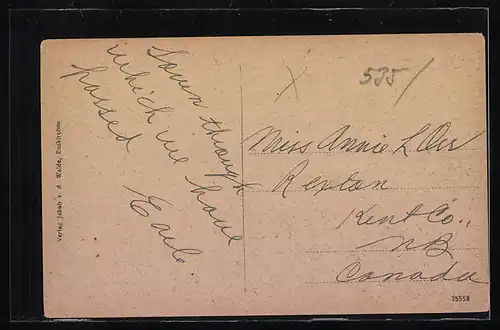 Town through
which we have
passed
Earle.
Verlag Jakob v. d. Walde, Euskirchen
535/
X
Miss Annie L Orr
Rexton
Kent Co.,
NB
Canada
25558